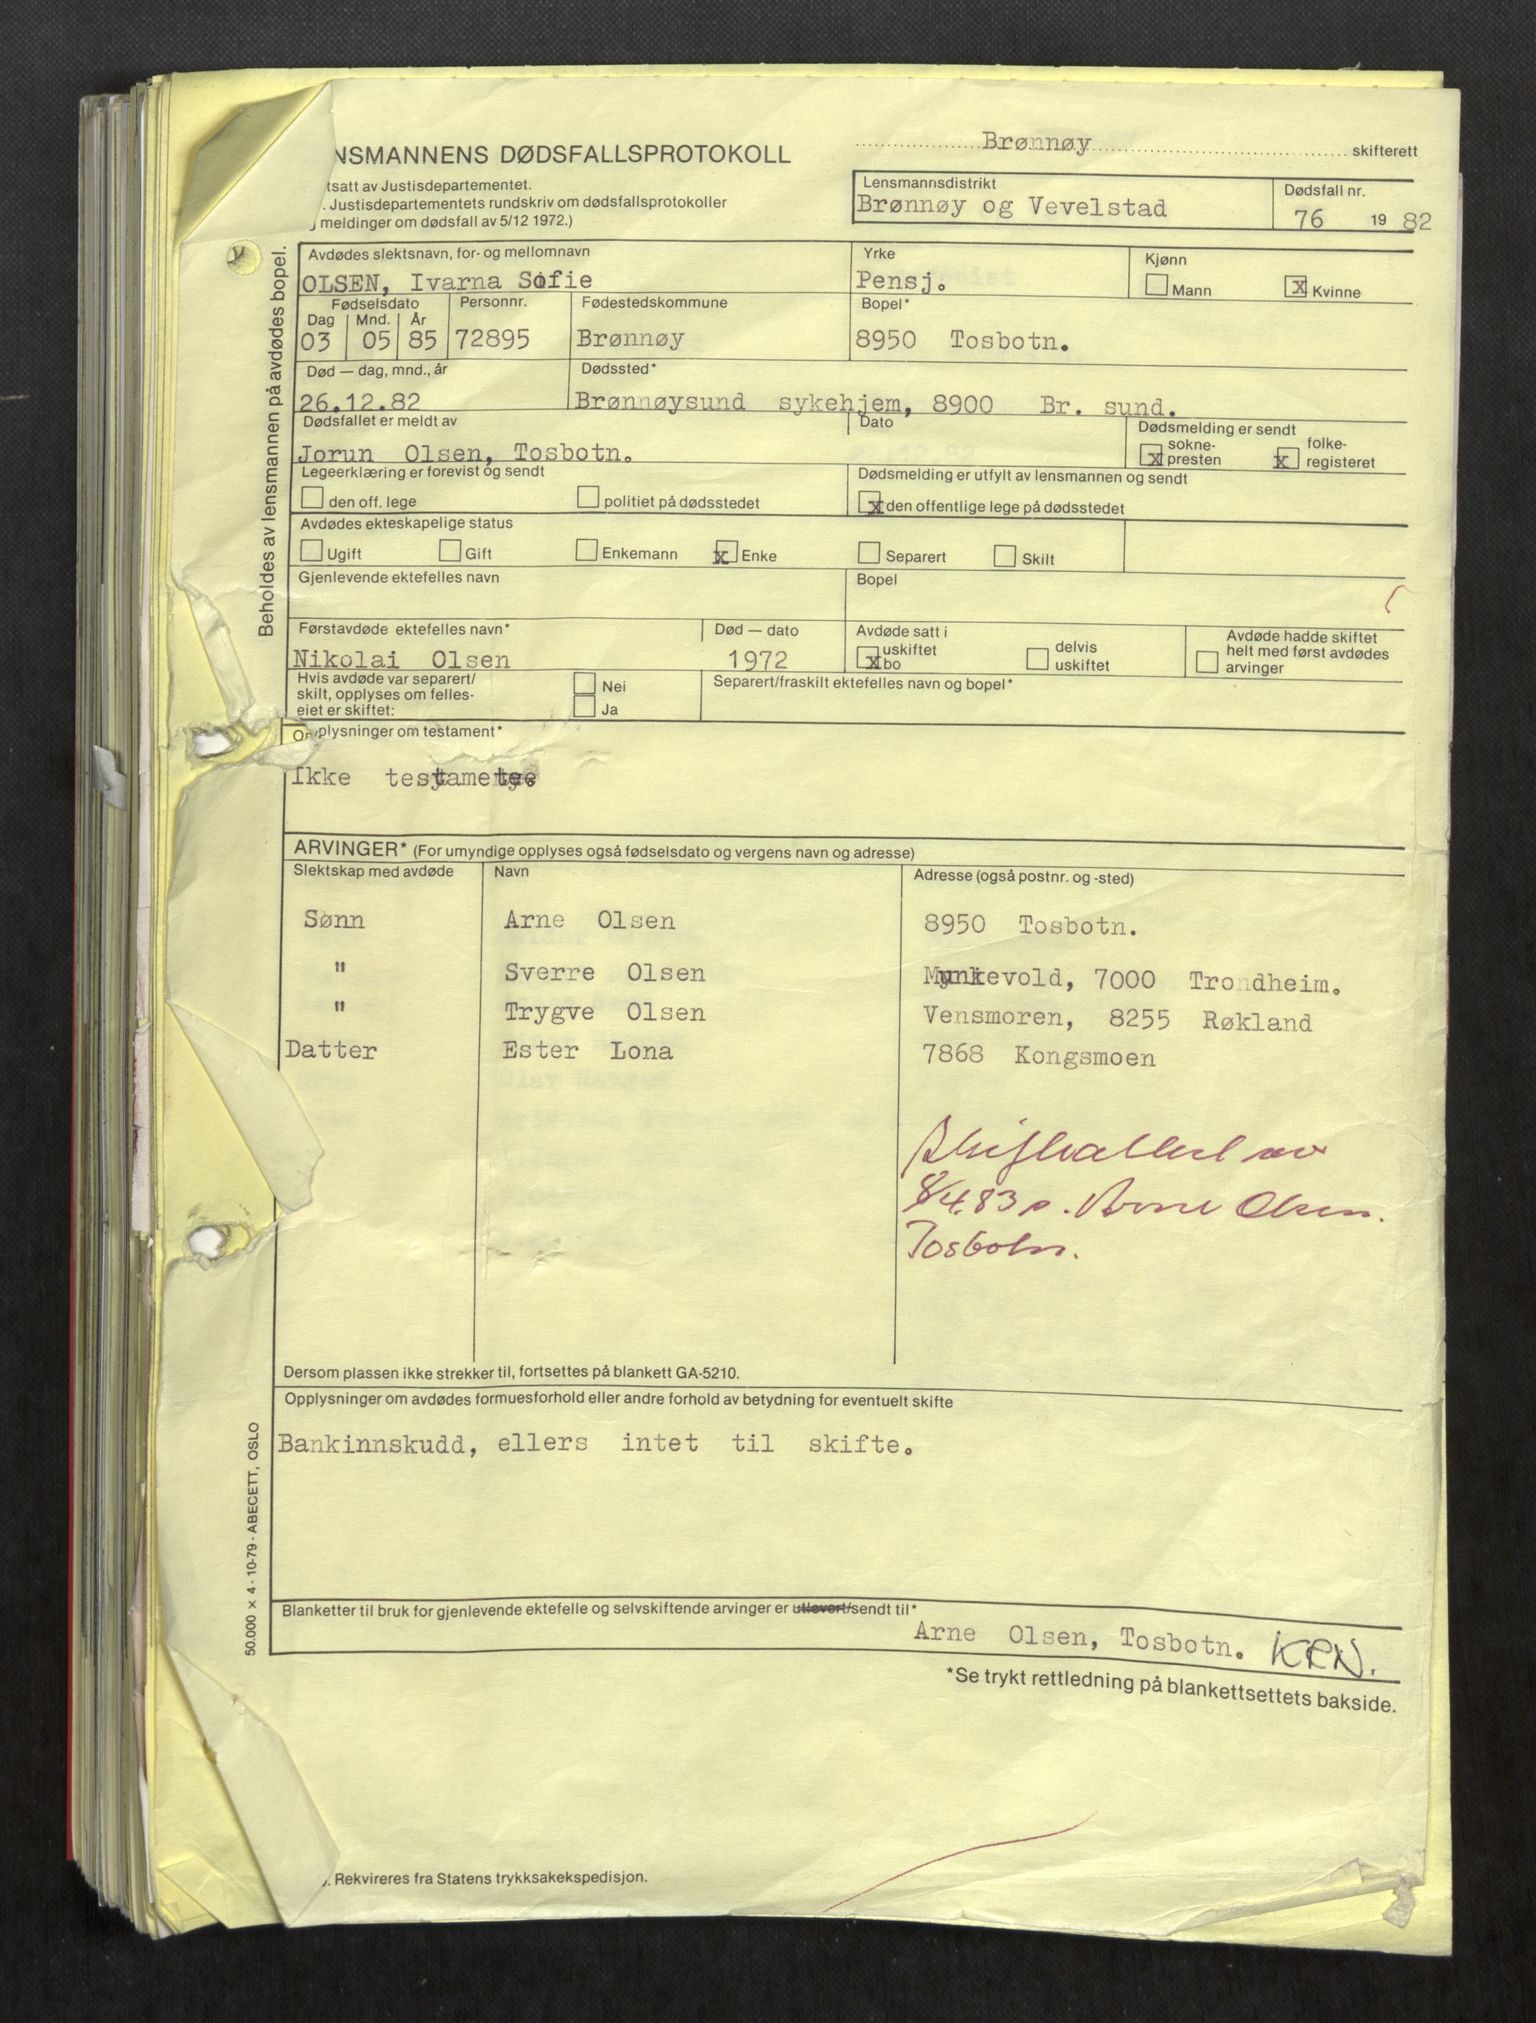 NSMANNENS DØDSFALLSPROTOKOLL
Brønnøy skifterett
tsatt av Justisdepartementet.
. Justisdepartementets rundskriv om dødsfallsprotokoller
meldinger om dødsfall av 5/12 1972.)
Lensmannsdistrikt
Brønnøy og Vevelstad
Dødsfall nr.
76 19 82
Beholdes av lensmannen på avdødes bopel.
Avdødes slektsnavn, for- og mellomnavn
OLSEN, Ivarna Sofie
Yrke
Pensj.
Kjønn
Mann x Kvinne
Fødselsdato
Dag Mnd. År
03 05 85
Personnr.
72895
Fødestedskommune
Brønnøy
Bopel*
8950 Tosbotn.
Død — dag, mnd., år
26.12.82
Dødssted*
Brønnøysund sykehjem, 8900 Br. sund.
Dødsfallet er meldt av
Jorun Olsen, Tosbotn.
Dato
Dødsmelding er sendt
x sokne-
presten
x folke-
registeret
Legeerklæring er forevist og sendt
den off. lege politiet på dødsstedet
Dødsmelding er utfylt av lensmannen og sendt
x den offentlige lege på dødsstedet
Avdødes ekteskapelige status
Ugift Gift Enkemann x Enke Separert Skilt
Gjenlevende ektefelles navn
Bopel
Førstavdøde ektefelles navn*
Nikolai Olsen
Død — dato
1972
Avdøde satt i
x uskiftet
bo
delvis
uskiftet
Avdøde hadde skiftet
helt med først avdødes
arvinger
Hvis avdøde var separert/
skilt, opplyses om felles-
eiet er skiftet:
Nei
Ja
Separert/fraskilt ektefelles navn og bopel*
Opplysninger om testament*
Ikke
ARVINGER* (For umyndige opplyses også fødselsdato og vergens navn og adresse)
Slektskap med avdøde Navn Adresse (også postnr. og -sted)
Sønn Arne Olsen 8950 Tosbotn.
" Sverre Olsen Munkevold, 7000 Trondheim.
" Trygve Olsen Vensmoren, 8255 Røkland
Datter Ester Lona 7868 Kongsmoen
8/4.83 Arne Olsen.
Tosbotn.
Dersom plassen ikke strekker til, fortsettes på blankett GA-5210.
Opplysninger om avdødes formuesforhold eller andre forhold av betydning for eventuelt skifte
Bankinnskudd, ellers intet til skifte.
50.000 × 4 - 10-79 - ABECETT, OSLO
Blanketter til bruk for gjenlevende ektefelle og selvskiftende arvinger er utlevert/sendt til*
Arne Olsen, Tosbotn. KRN.
*Se trykt rettledning på blankettsettets bakside.
. Rekvireres fra Statens trykksakekspedisjon.